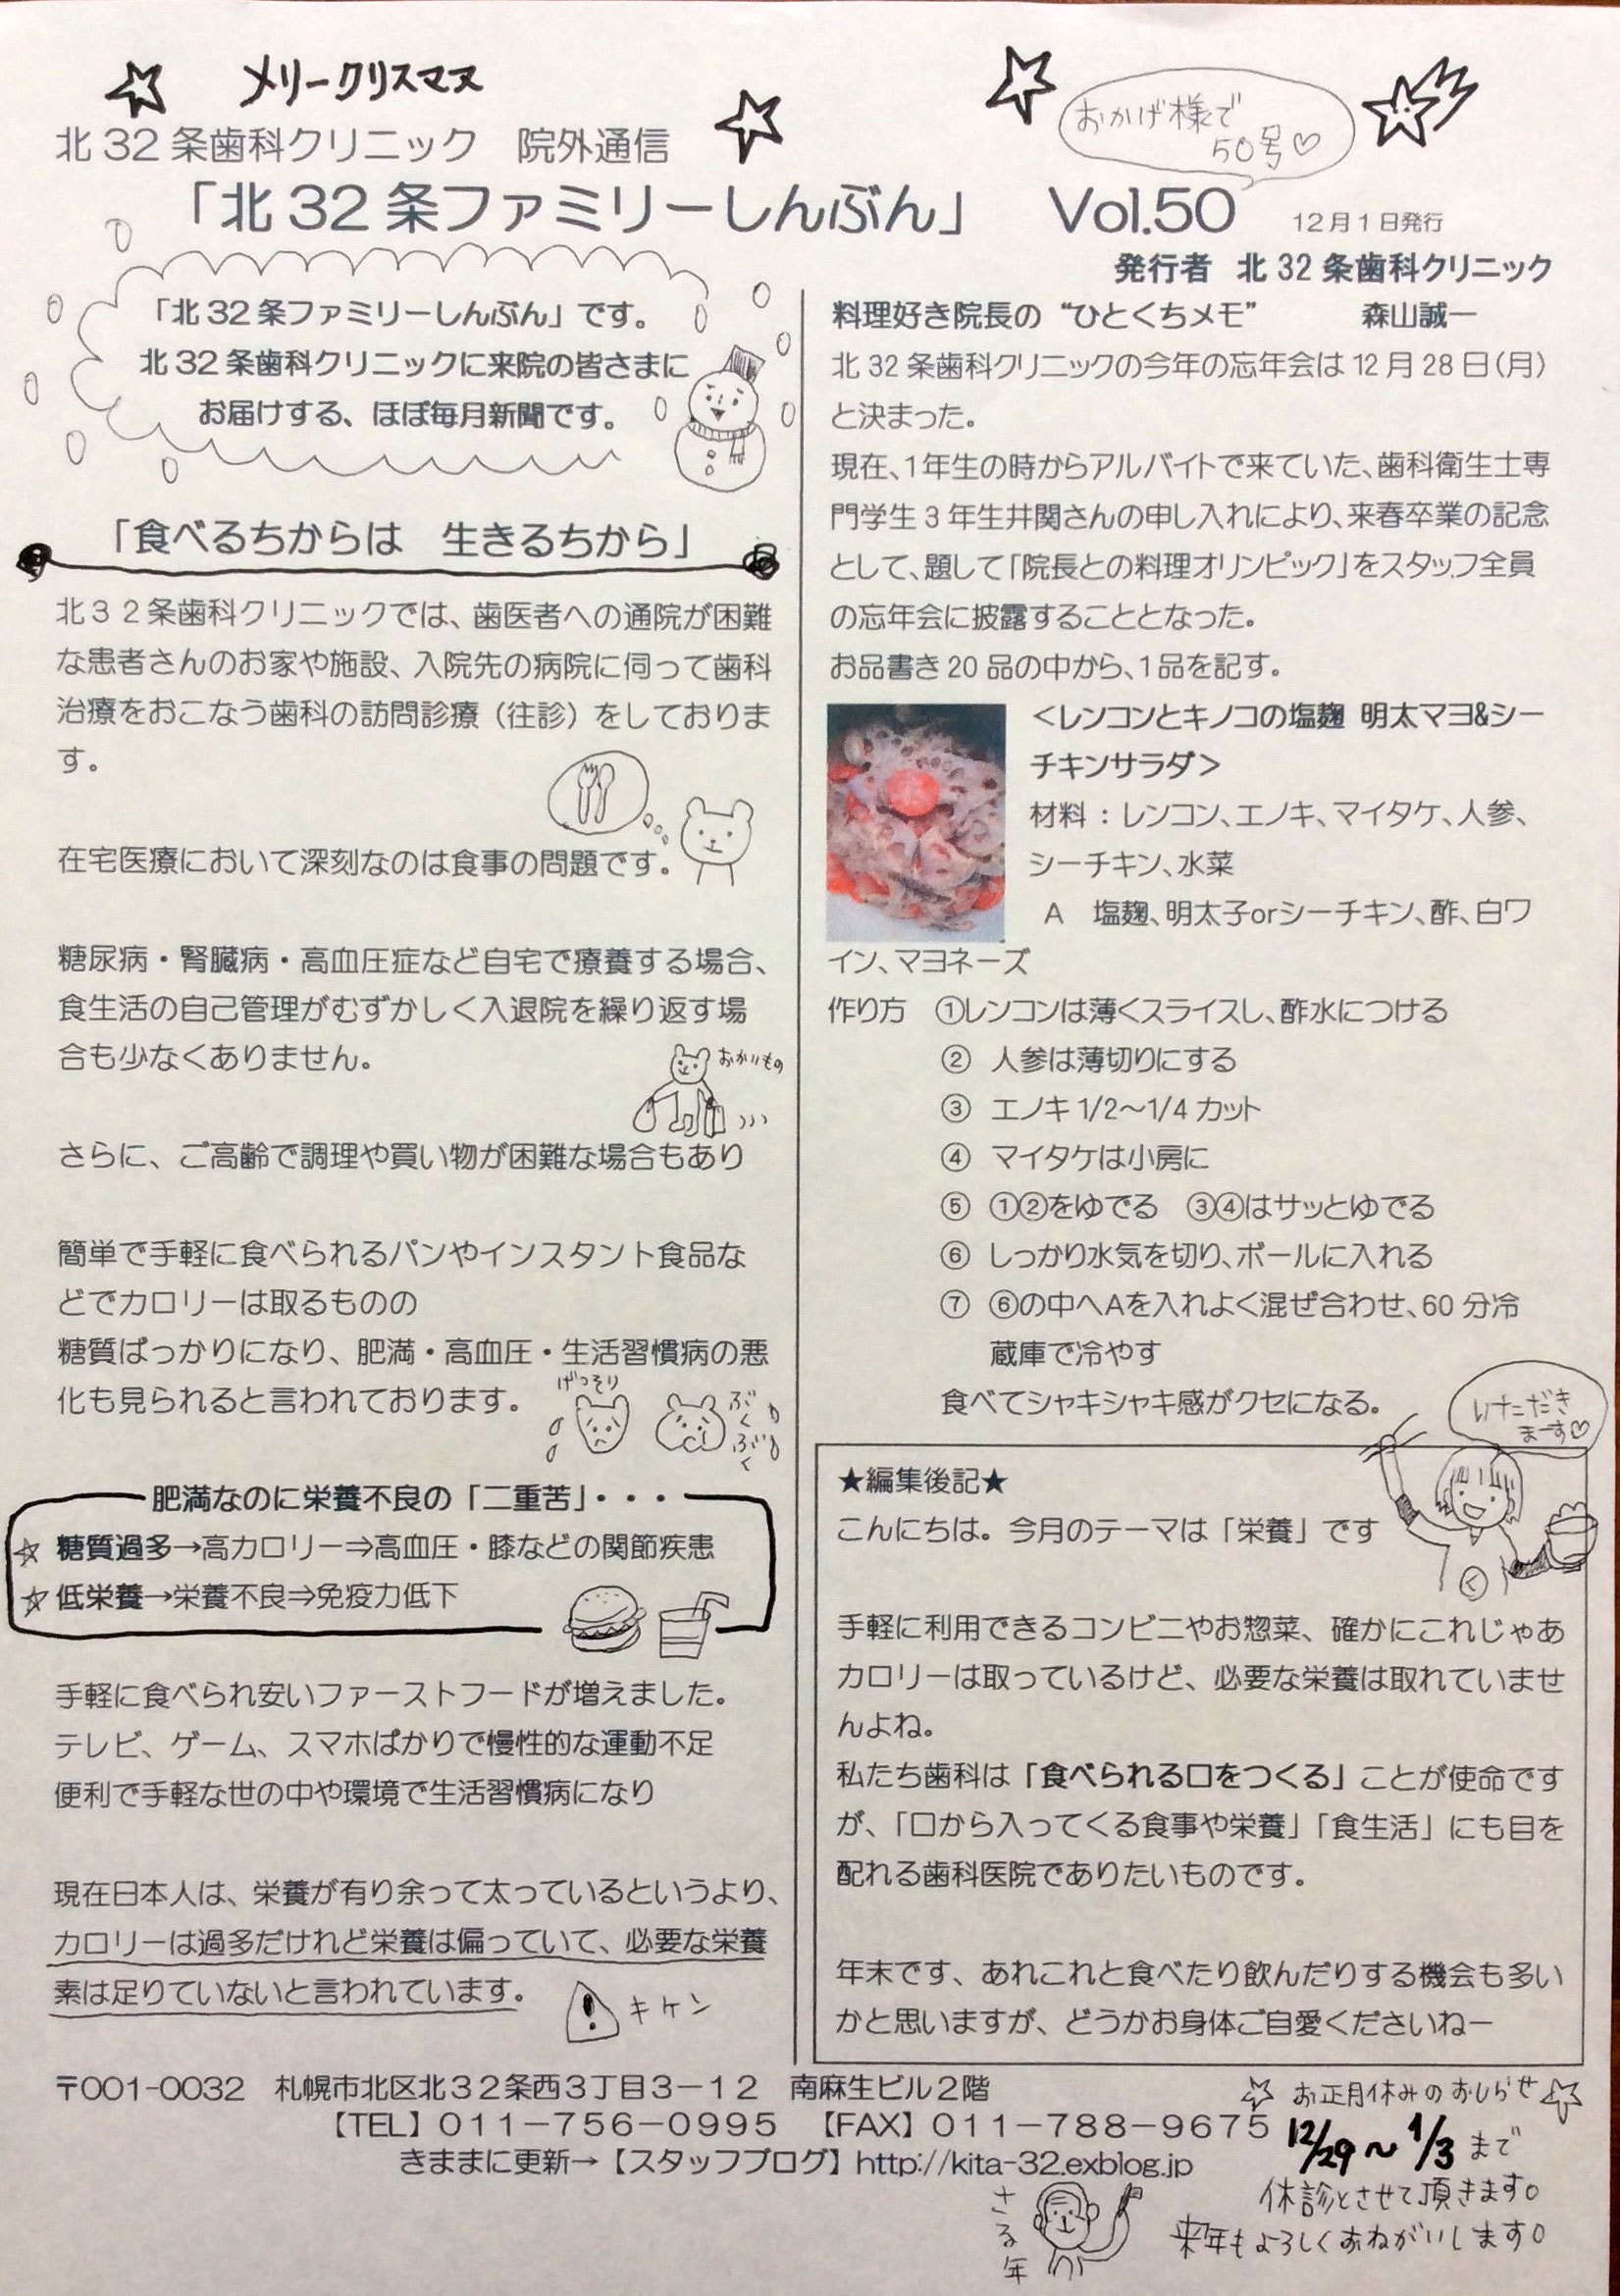 メリークリスマス
おかげ様で
50号♡
北32条歯科クリニック　院外通信
「北32条ファミリーしんぶん」　Vol.50　12月1日発行
発行者　北32条歯科クリニック
「北32条ファミリーしんぶん」です。
北32条歯科クリニックに来院の皆さまに
お届けする、ほぼ毎月新聞です。
「食べるちからは　生きるちから」
北３２条歯科クリニックでは、歯医者への通院が困難
な患者さんのお家や施設、入院先の病院に伺って歯科
治療をおこなう歯科の訪問診療（往診）をしておりま
す。
在宅医療において深刻なのは食事の問題です。
糖尿病・腎臓病・高血圧症など自宅で療養する場合、
食生活の自己管理がむずかしく入退院を繰り返す場
合も少なくありません。
おかいもの
さらに、ご高齢で調理や買い物が困難な場合もあり
簡単で手軽に食べられるパンやインスタント食品な
どでカロリーは取るものの
糖質ばっかりになり、肥満・高血圧・生活習慣病の悪
化も見られると言われております。
げっそり
ぶくぶく
肥満なのに栄養不良の「二重苦」・・・
☆ 糖質過多→高カロリー⇒高血圧・膝などの関節疾患
☆ 低栄養→栄養不良⇒免疫力低下
手軽に食べられ安いファーストフードが増えました。
テレビ、ゲーム、スマホばかりで慢性的な運動不足
便利で手軽な世の中や環境で生活習慣病になり
現在日本人は、栄養が有り余って太っているというより、
カロリーは過多だけれど栄養は偏っていて、必要な栄養
素は足りていないと言われています。
！キケン
料理好き院長の “ひとくちメモ”　森山誠一
北32条歯科クリニックの今年の忘年会は12月28日（月）
と決まった。
現在、1年生の時からアルバイトで来ていた、歯科衛生士専
門学生3年生井関さんの申し入れにより、来春卒業の記念
として、題して「院長との料理オリンピック」をスタッフ全員
の忘年会に披露することとなった。
お品書き20品の中から、1品を記す。
＜レンコンとキノコの塩麹 明太マヨ&シー
チキンサラダ＞
材料：レンコン、エノキ、マイタケ、人参、
シーチキン、水菜
A　塩麹、明太子orシーチキン、酢、白ワ
イン、マヨネーズ
作り方　①レンコンは薄くスライスし、酢水につける
② 人参は薄切りにする
③ エノキ1/2～1/4カット
④ マイタケは小房に
⑤ ①②をゆでる　③④はサッとゆでる
⑥ しっかり水気を切り、ボールに入れる
⑦ ⑥の中へAを入れよく混ぜ合わせ、60分冷
蔵庫で冷やす
食べてシャキシャキ感がクセになる。
いただき
まーす♡
★編集後記★
こんにちは。今月のテーマは「栄養」です
く
手軽に利用できるコンビニやお惣菜、確かにこれじゃあ
カロリーは取っているけど、必要な栄養は取れていませ
んよね。
私たち歯科は「食べられる口をつくる」ことが使命です
が、「口から入ってくる食事や栄養」「食生活」にも目を
配れる歯科医院でありたいものです。
年末です、あれこれと食べたり飲んだりする機会も多い
かと思いますが、どうかお身体ご自愛くださいねー
〒001-0032　札幌市北区北３２条西３丁目３－１２　南麻生ビル２階
【TEL】０１１－７５６－０９９５　【FAX】０１１－７８８－９６７５
きままに更新→【スタッフブログ】http://kita-32.exblog.jp
☆ お正月休みのおしらせ ☆
12/29～1/3まで
休診とさせて頂きます。
来年もよろしくおねがいします。
さる年